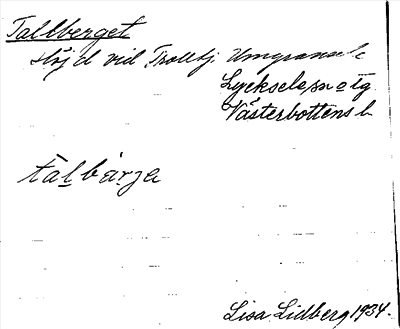 Tallberget
Höjd vid Trolltj. Umgransele
Lycksele sn o tg.
Västerbottens l.
tàlbàrja
Lisa Lidberg 1934.